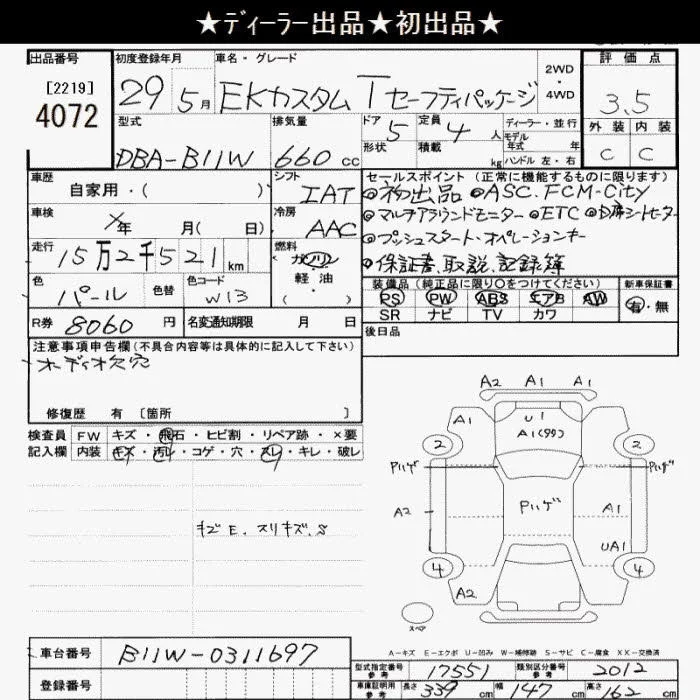 ★ディーラー出品★初出品★
出品番号
[2219]
4072
初度登録年月
29 5月
車名・グレード
EKカスタム T セーフティパッケージ
2WD
・
4WD
評価点
3.5
外装 内装
C C
型式
DBA-B11W
排気量
660 cc
ドア 5
形状
定員 4 人
積載 kg
ディーラー・並行
モデル
年式 年
ハンドル 左・右
車歴
自家用・( )
シフト
IAT
セールスポイント (正常に機能するものに限ります)
◎初出品 ◎ASC.FCM-City
◎マルチアラウンドモニター ◎ETC ◎シートヒーター
◎プッシュスタート・オペレーションキー
◎保証書、取説、記録簿
車検
年 月( 日)
冷房
AAC
走行
15万2千521 km
燃料
ガソリン
軽油
( ・ )
色
パール
色替
色コード
W13
装備品 (純正品に限り○をつけてください)
PS PW ABS エアB AW
SR ナビ TV カワ
新車保証書
有・無
R券 8060 円
名変通知期限 月 日
後日品
注意事項申告欄 (不具合内容等は具体的に記入して下さい)
オーディオ欠穴
修復歴 有 [箇所 ]
検査員
記入欄
FW キズ・飛石・ヒビ割・リペア跡・×要
内装 キズ・汚レ・コゲ・穴・スレ・キレ・破レ
キズE、スリキズ、S
A2 A1 A1
A1
U1
A1(99)
2 2
Pハゲ Pハゲ
A2
Pハゲ
A1
UA1
4 4
A2
スペア
A−キズ E−エクボ U−凹み W−補修跡 S−サビ C−腐食 XX−交換済
車台番号 B11W-0311697
登録番号
型式指定番号
参考
17551
類別区分番号
参考
2012
車庫証明用
参考
長さ 339 cm
幅 147 cm
高さ 162 cm